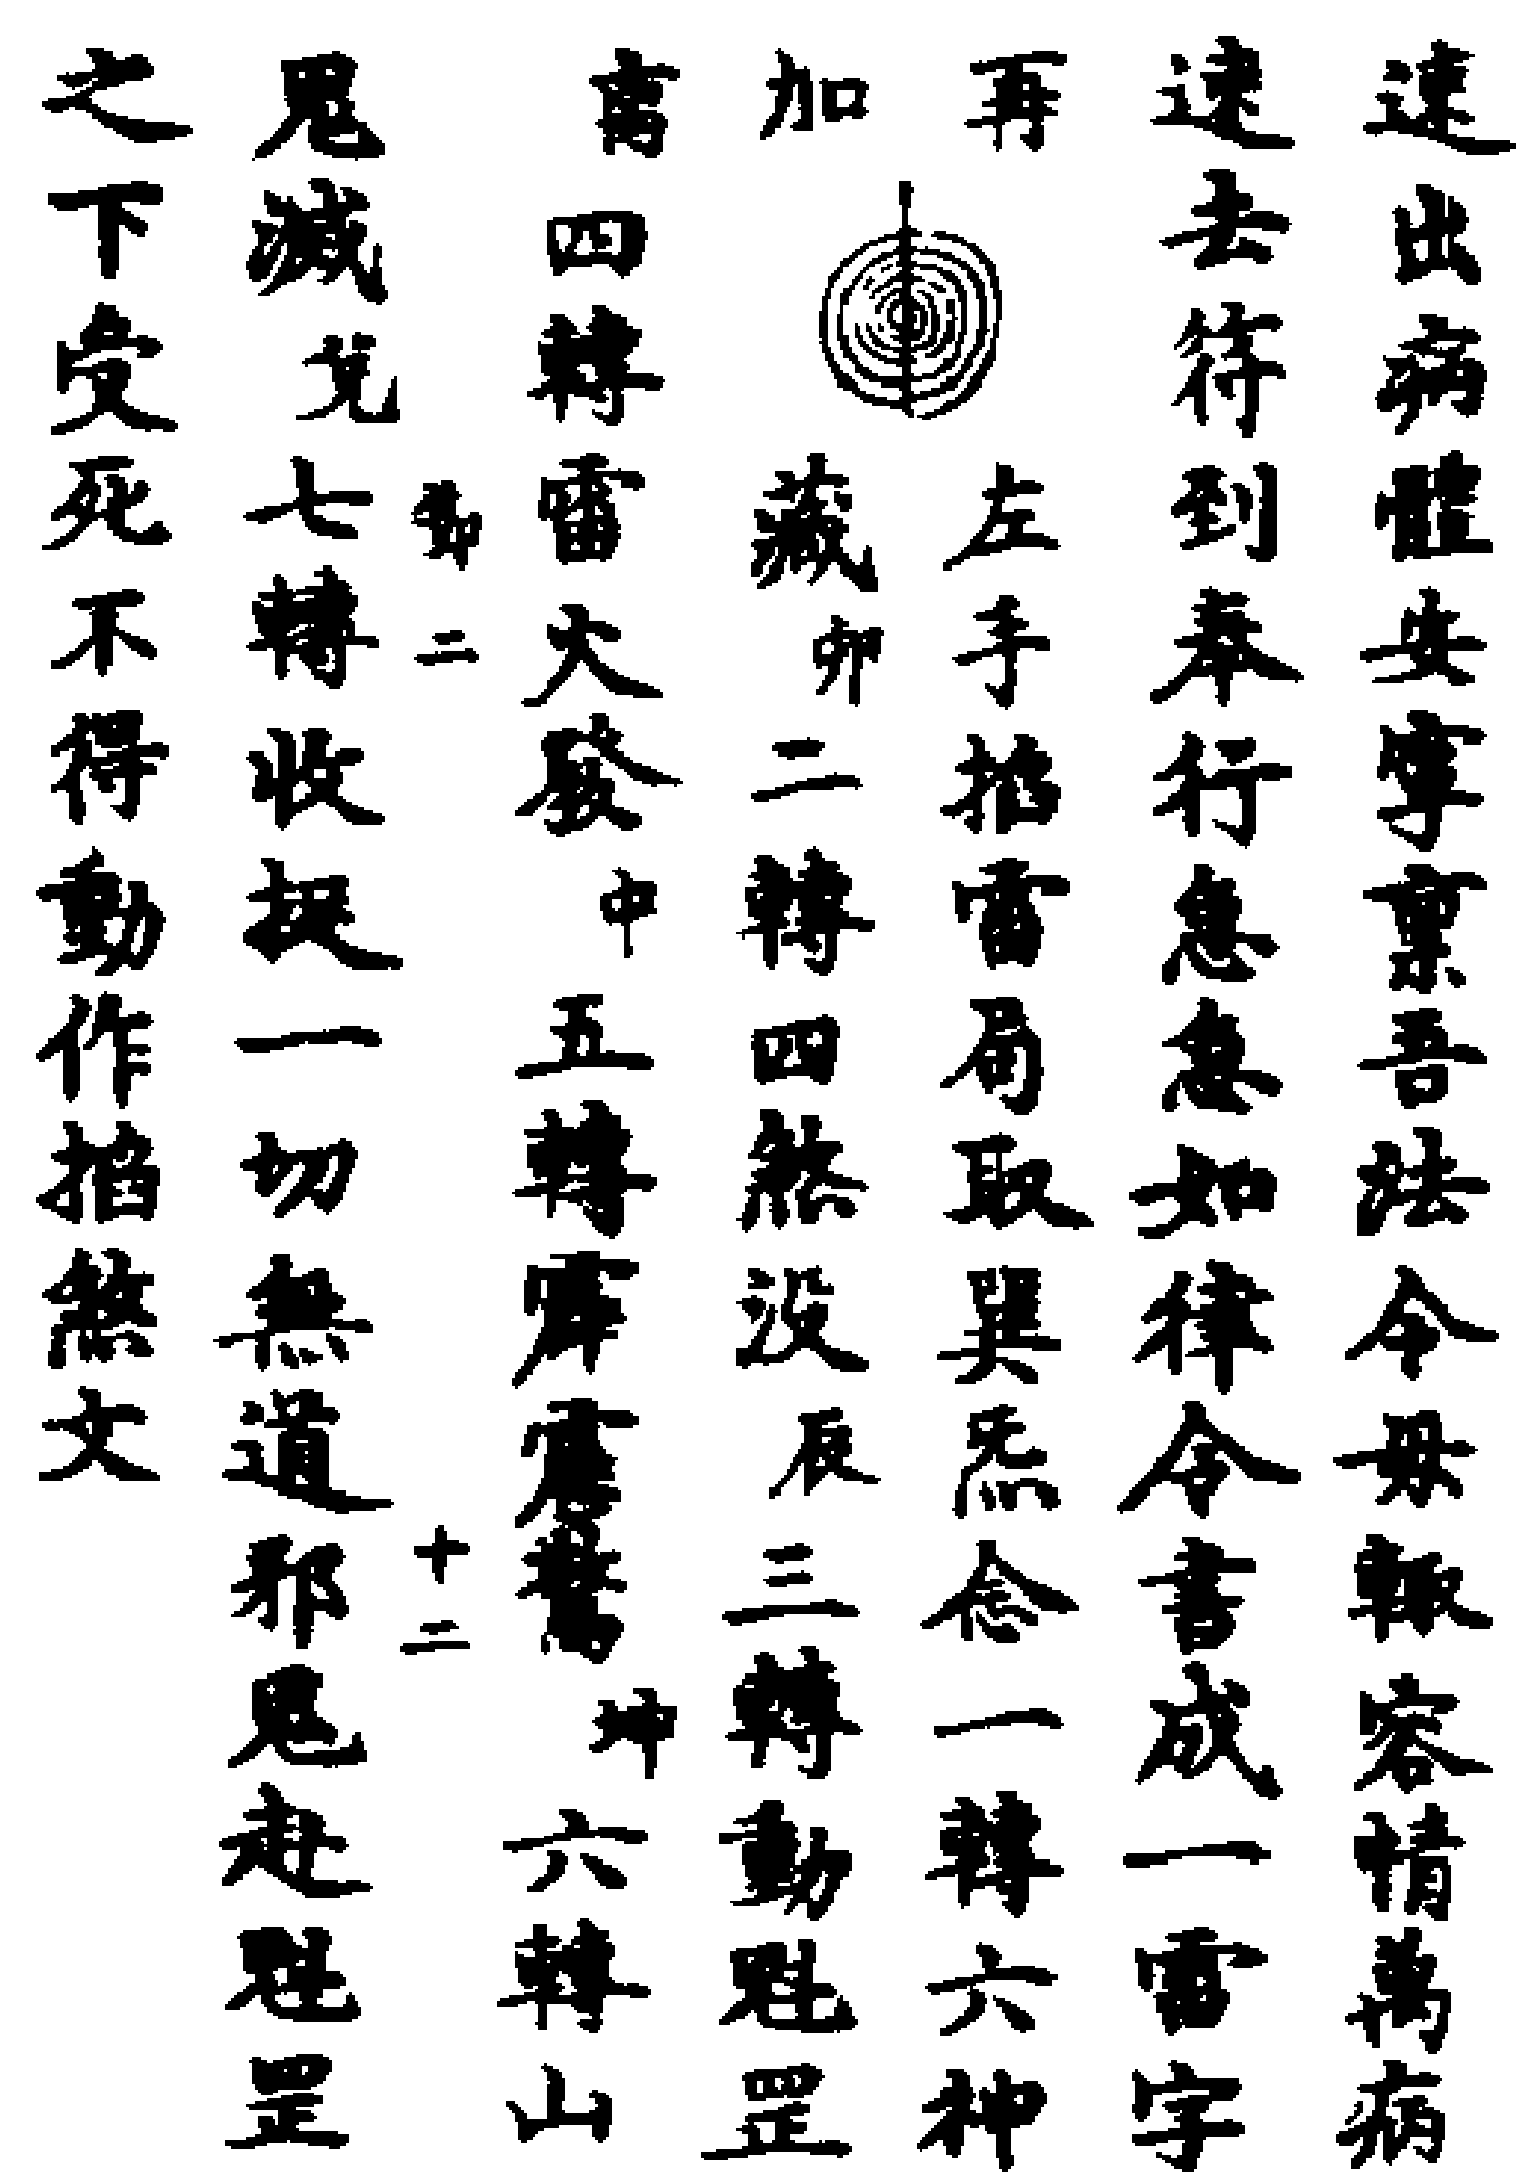 速出病體安寜禀吾法令毋輙容情萬病
速去符到奉行急急如律令書成一雷字
再左手掐雷局取巽炁念一轉六神
加藏卯二轉四煞没辰三轉動魁罡
离四轉雷火發中五轉霹震驚坤六轉山
二 十二
鬼滅兌七轉收捉一切無道邪鬼赴魁罡
之下受死不得動作掐煞文